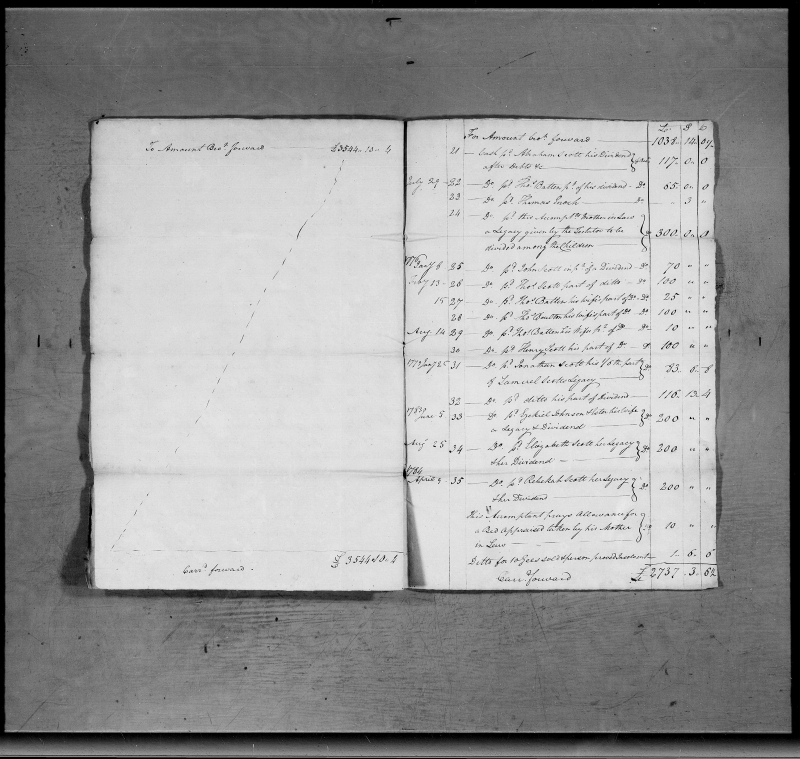 To Amount Bro.t forward £3544 " 10 " 4
£3544 " 10 " 4
Carr.d forward.
L S D
For Amount bro.t forward 1038 " 14 "
21 — Cash p.d Abraham Scott his Dividend
after Debts &c 117 " 0 " 0
July 29 — 22 — Do p.d Tho.s Batten p.t of his dividend — Do 65 " 0 " 0
23 — Do p.d Thomas Enoch — Do " 3 "
24 — Do p.d this Accompt.ts Brother in Law
a Legacy given by the Testator to be Do 300 " 0 " 0
divided among the Children
1776 Jan.y 6 25 — Do p.d John Scott in p.t of a Dividend — Do 70 " "
Feb.y 13 — 26 — Do p.d Tho.s Scott part of ditto — Do 100 " "
15 27 — Do p.d Tho.s Batten his wife's part of Do — Do 25 " "
28 — Do p.d Tho.s Boulton his wife's part of Do Do 100 " "
Aug. 14 29 — Do p.d Tho.s Batten his Wifes p.t of Do — Do 10 " "
30 — Do p.d Henry Scott his part of Do — Do 100 " "
Jan.y 25 31 — Do p.d Jonathan Scott his 1/6th part
of Samuel Scotts Legacy Do 83 " 6 " 8
32 — Do p.d ditto his part of Dividend — 116 " 13 " 4
June 5 33 — Do p.d Ezekiel Johnson & his wife
a Legacy & Dividend Do 200 " "
Aug. 25 34 — Do p.d Elizabeth Scott her Legacy
& her Dividend Do 200 " "
1784
April 9 35 — Do p.d Rebekah Scott her Legacy
& her Dividend Do 200 " "
This Accomptant prays Allowance for
a Bed Appraised & taken by his Mother 10 " "
in Law
Ditto for 10 Gees sold & person proved Insolvent 1 " 6 " 6
Carr.d forward £2737 " 3 "